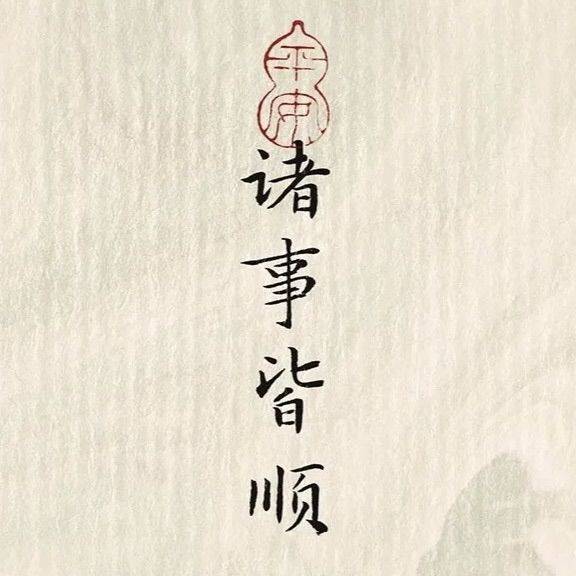 平安
诸事皆顺